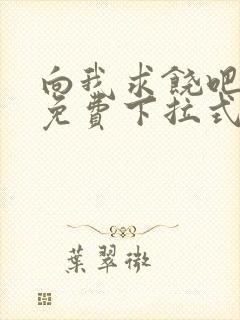 向我求饒吧
免費下拉式
葉翠微